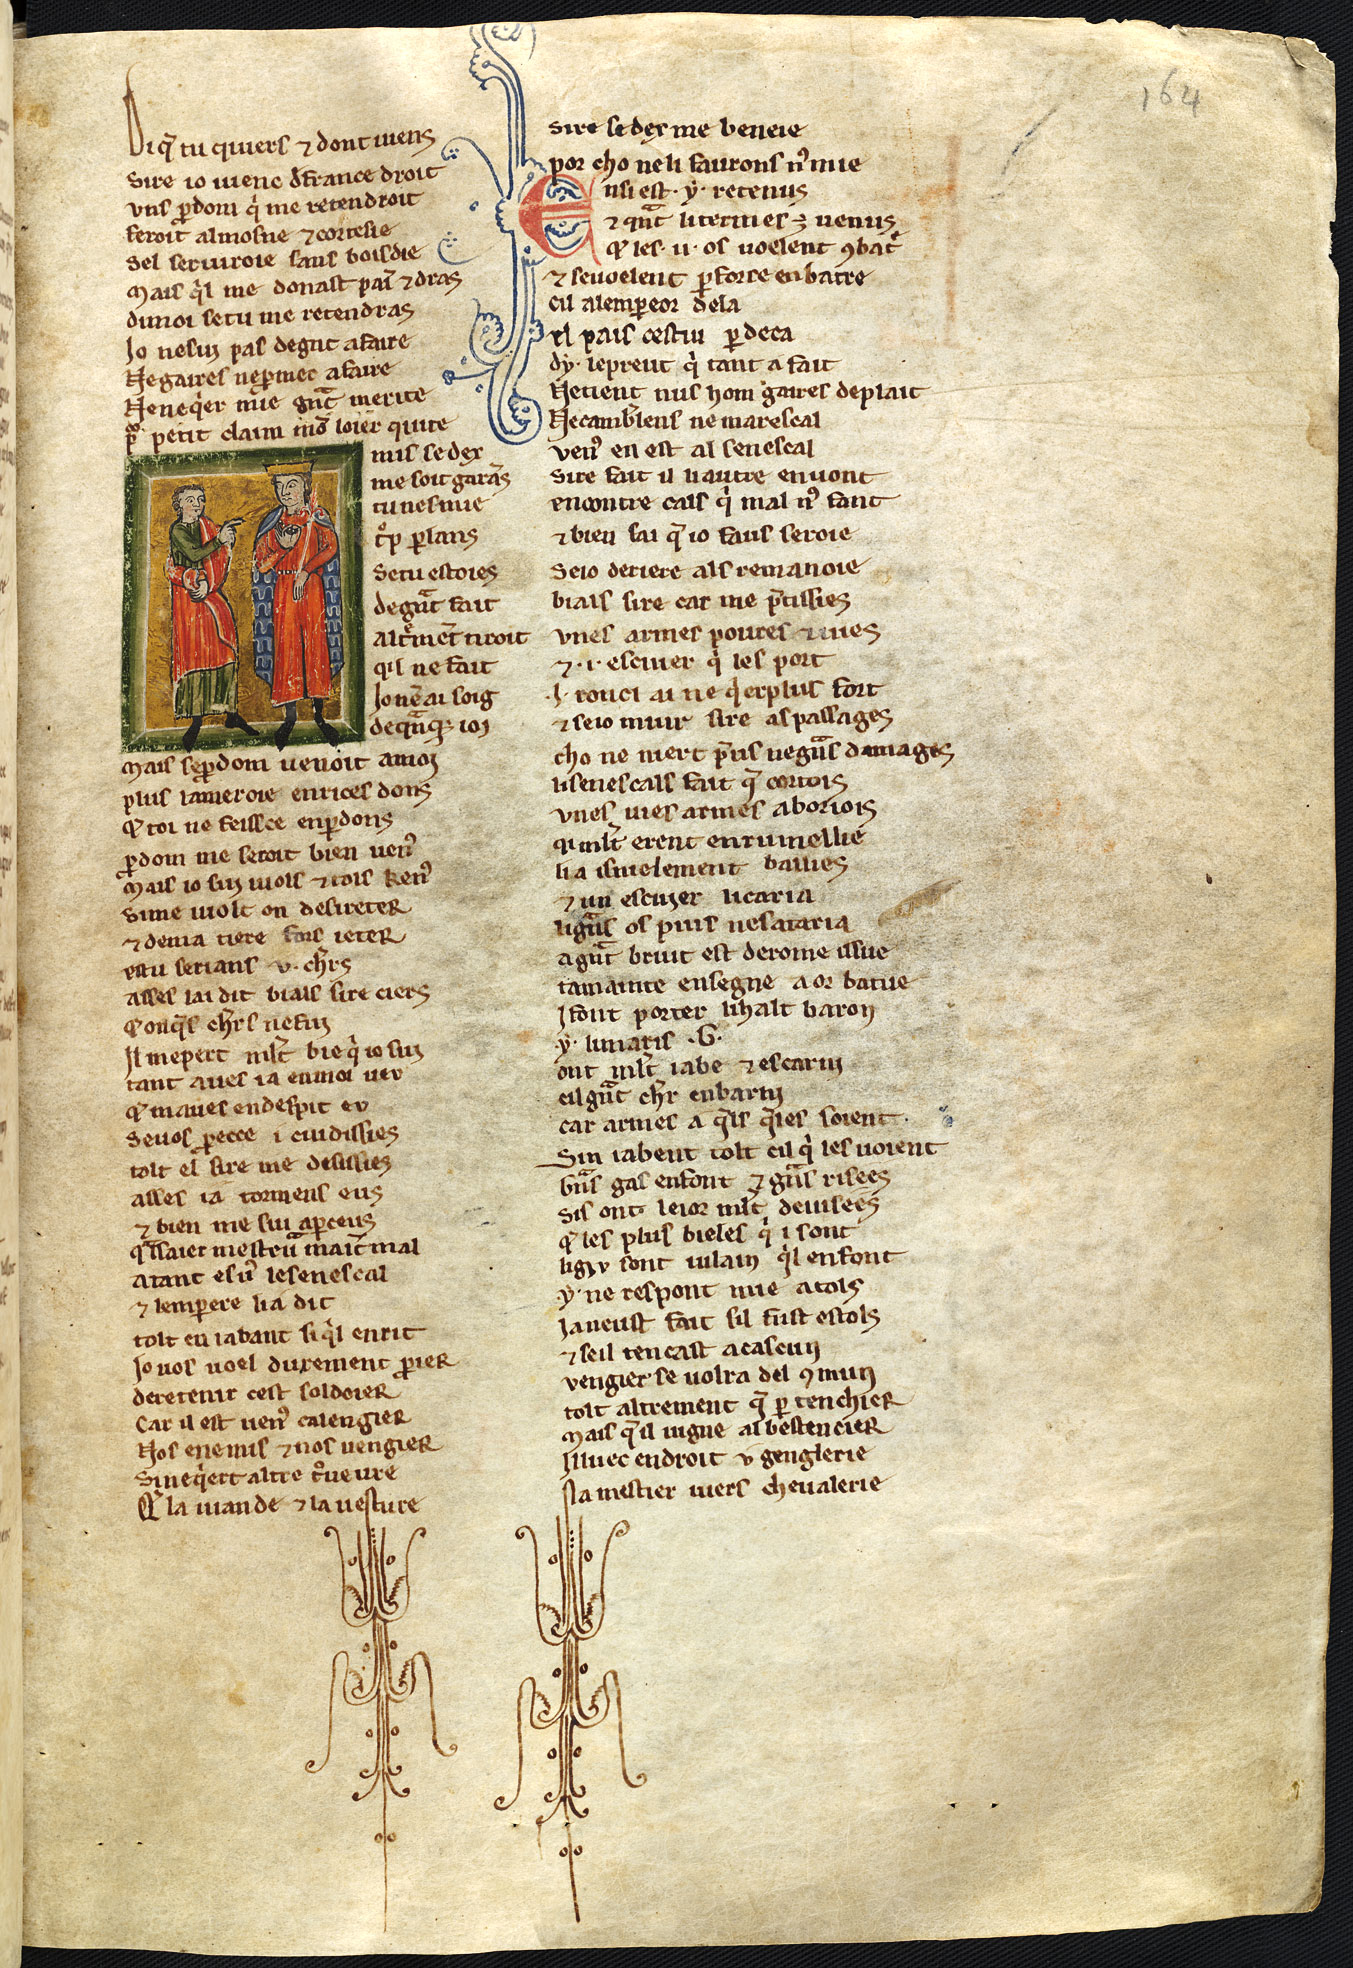 164
Di q̄ tu quiers ⁊ dont uiens
Sire io uienc d̄ france droit
vns p̄dom q̓ me retendroit
feroit almosne ⁊ cortesie
Sel seruiroie sans boisdie
Mais q̓l me donast pain ⁊ dras
di moi se tu me retendras
Jo ne sui pas de gnt afaire
Ne gaires ne p̄met a faire
Ne neq̓er mie gnt merite
petit claim loier quite
mis se dex
me soit garās
tu nes mie
p̄ lans
Se tu estoies
de gnt fait
altm̄et iroit
qil ne fait
Jo nē ai soig
de
Mais se p̄dom uenoit a moi
plus lameroie en rices dons
Q̄ toi ne feissce en p̄dons
p̄dom me seroit bien uen᾽
Mais io sui uiols ⁊ tols ken᾽
Si me uiolt on desireter
⁊ de ma tiere fors ieter
es tu serians v. chr̄s
asses lai dit bials sire ciers
Q̄ onq̄s chr̄s ne fui
Il mepert mlt̄ bie q̓ io sui
tant aues ia en moi ueu
Q̄ maues en despit eu
Se uos p̄ecce i cuidissies
tolt el sire me desissies
asses ia tormens eus
⁊ bien me sui ap̄ceus
mal
atant es u᾽ le senescal
⁊ lemp̄ere li a dit
tolt en iabant si q̓l en rit
Jo uos uoel durement p̄ier
de retenir cest soldoier
Car il est uen᾽ calengier
Nos enemis ⁊ nos uengier
Si neq̓ert altre
Q̄ la uiande ⁊ la uesture
Sire se dex me beneie
por cho ne li faurons n᾽ mie
Ensi est .y. retenus
⁊ qnt li termes ē uenus
Q̄ les .ii. os uoelent ꝯbat᾽
⁊ se uoelent p̄ force enbatre
cil alemp̄eor dela
el pais cestui p̄ deca
dy. le preut q̓ tant a fait
Ne tient nus hom gaires de plait
Ne camb̄lens ne marescal
ven᾽ en est al senescal
Sire fait il li autre en uont
encontre cals q̓ mal n᾽ font
⁊ bien sai q̄ io faus seroie
Se io deriere als remanoie
bials sire car me p̄tissies
vnes armes poures ⁊ uies
⁊ .i. escuier q̓ les port
.i. ronci ai ne q̓er plus fort
⁊ se io muir sire as passages
cho ne niert p̄us ne gn̄s damages
li senescals fait q̄ cortois
vnes uies armes a boriois
qi mlt̄ erent enrunellie
li a isnielement ballies
⁊ un escuier li caria
li gn̄s os plus ne sataria
a gnt bruit est de rome issue
tamainte ensegne a or batue
I font porter li halt baron
.y. li maris .G.
ont mlt̄ iabe ⁊ escarni
cil gnt chr̄ enbarni
car armes a q̄ls q̄les soient
Sin iabent tolt cil q̓ les uoient
gn̄s gas en font ⁊ gn̄s risees
Sis ont le ior mlt̄ deuisees
Q̄ les plus bieles q̓ i sont
sont uilain q̓l en font
.y. ne respont mie a tols
Ja neust fait sil fust estols
⁊ seil tencast a cascun
vengier se uolra del ꝯmun
tolt altrement q̄ p̄ tenchier
Mais q̄ il uigne al bestencier
Illuec endroit v genglerie
Na mestier uiers cheualerie